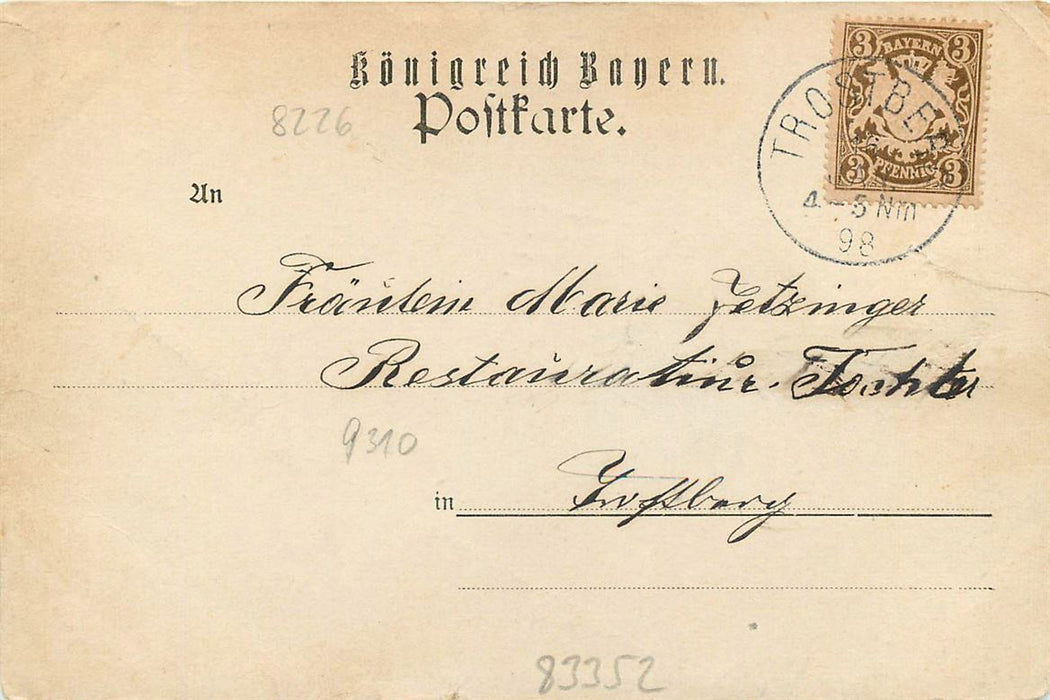 Königreich Bayern.
Postkarte.
8226
3 BAYERN 3
3 PFENNIG 3
TROSTBERG
4-5 Nm
98
An
Fräulein Marie Zetzinger
Restaurateur. Tochter
9310
in Trostberg
83352